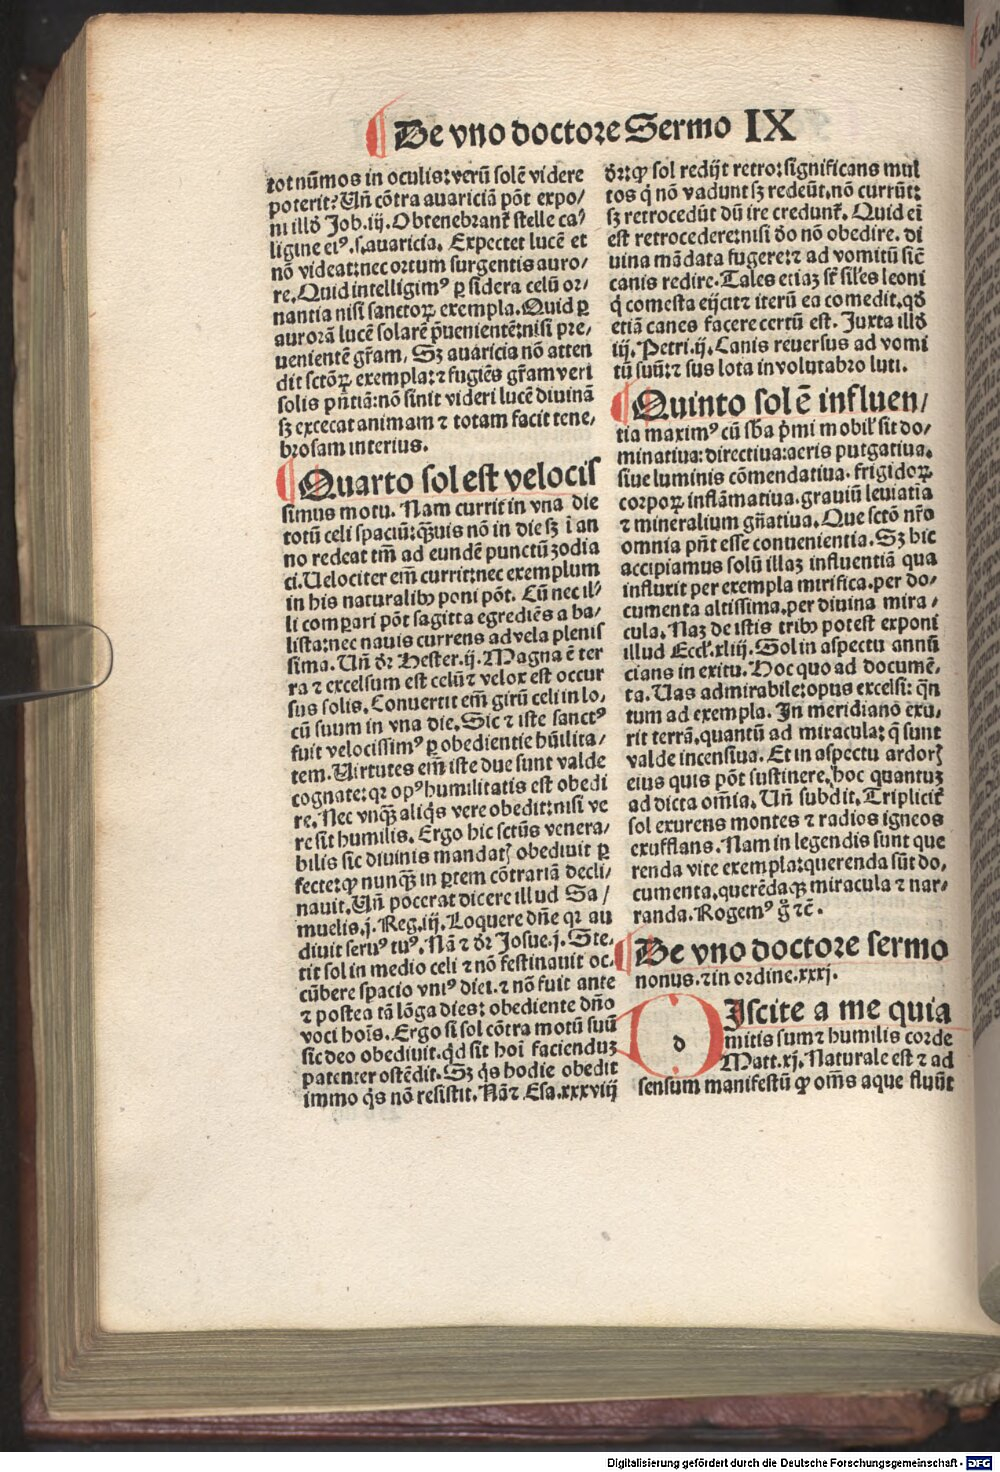 De vno doctore Sermo IX
tot nūmos in oculis: verū solē videre
poterit? Uñ cōtra auariciā pōt expo/
ni illđ Job.iij. Obtenebrant᷑ stelle ca/
ligine eiꝰ.s.auaricia. Expectet lucē et
nō videat: nec ortum surgentis auro/
re. Quid intelligimꝰ ꝑ sidera celū or/
nantia nisi sanctoꝝ exempla. Quid ꝑ
aurorā lucē solarē p̄uenientē: nisi pre/
uenientē gr̄am. Sꝫ auaricia nō atten
dit sctōꝝ exempla: ⁊ fugiēs gr̄am veri
solis p̄ntiā: nō sinit videri lucē diuinā
sꝫ excecat animam ⁊ totam facit tene/
brosam interius.
Quarto sol est velocis
simus motu. Nam currit in vna die
totū celi spaciū: qꝫuis nō in die sꝫ ī an
no redeat tm̄ ad eundē punctū zodia
ci. Uelociter em̄ currit: nec exemplum
in his naturalibꝰ poni pōt. Cū nec il/
li compari pōt sagitta egrediēs a ba/
lista: nec nauis currens ad vela plenis
sima. Uñ dr̄ Hester.ij. Magna ē ter
ra ⁊ excelsum est celū ⁊ velox est occur
sus solis. Conuertit em̄ girū celi in lo/
cū suum in vna die. Sic ⁊ iste sanctꝰ
fuit velocissimꝰ ꝑ obedientie hūilita/
tem. Uirtutes em̄ iste due sunt valde
cognate: qr opꝰ humilitatis est obedi
re. Nec vnqꝫ aliq̄s vere obedit: nisi ve
re sit humilis. Ergo hic sctūs venera/
bilis sic diuinis mandat᷑ obediuit ꝑ
fecte: ꝙ nunqꝫ in ꝑtem cōtrariā decli/
nauit. Uñ poterat dicere illud Sa/
muelis.j. Reg.iij. Loquere dñe qr au
diuit seruꝰ tuꝰ. Nā ⁊ dr̄ Josue.j. Ste/
tit sol in medio celi ⁊ nō festinauit oc/
cūbere spacio vniꝰ diei. ⁊ nō fuit ante
⁊ postea tā lōga dies: obediente dño
voci hoīs. Ergo si sol cōtra motū suū
sic deo obediuit. qd sit hoī faciendūꝫ
patenter ostēdit. Sꝫ q̄s hodie obedit
immo q̄s nō resistit. Nā ⁊ Esa.xxxviij
dr̄: ꝙ sol redijt retro: significans mul
tos q̄ nō vadunt sꝫ redeūt. nō currūt:
sꝫ retrocedūt dū ire credunt᷑. Quid eī
est retrocedere: nisi do nō obedire. di
uina mādata fugere: ⁊ ad vomitū sic̄
canis redire. Tales etiaꝫ sr̄t siles leoni
q̄ comesta eijcit ⁊ iterū ea comedit. qđ
etiā canes facere certū est. Juxta illđ
ij. Petri.ij. Canis reuersus ad vomi
tū suū: ⁊ sus lota in volutabro luti.
Quinto sol ē influen/
tia maximꝰ cū sb̄a p̄mi mobil᷑ sit do/
minatiua: directiua: aeris purgatiua.
siue luminis cōmendatiua. frigidoꝝ
corpoꝝ inflāmatiua. grauiū leuiatīa
⁊ mineralium gn̄atiua. Que sctō nr̄o
omnia pn̄t esse conuenientia. Sꝫ hic
accipiamus solū illaꝫ influentiā qua
influxit per exempla mirifica. per do/
cumenta altissima. per diuina mira/
cula. Naꝫ de istis tribꝰ potest exponi
illud Eccl᷑.xliij. Sol in aspectu annū
cians in exitu. Hoc quo ad documē/
ta. Uas admirabile: opus excelsi: qn̄
tum ad exempla. In meridiano exu/
rit terrā. quantū ad miracula: q̄ sunt
valde incensiua. Et in aspectu ardor᷑
eius quis pōt sustinere. hoc quantuꝫ
ad dicta om̄ia. Uñ subdit. Triplicit᷑
sol exurens montes ⁊ radios igneos
exufflans. Nam in legendis sunt que
renda vite exempla: querenda sūt do/
cumenta. querēdaqꝫ miracula ⁊ nar/
randa. Rogemꝰ g̊ ⁊c̄.
De vno doctore sermo
nonus. ⁊ in ordine.xxxj.
d
DIscite a me quia
mitis sum ⁊ humilis corde
Matt.xj. Naturale est ⁊ ad
sensum manifestū ꝙ om̄s aque fluūt
Digitalisierung gefördert durch die Deutsche Forschungsgemeinschaft - DFG